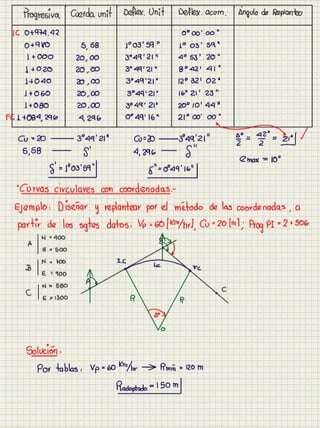 Progresiva Cuerda unit Deflex. Unit Deflex. acum. Ángulo de Replanteo
IC 0+974.42 0°00'00"
0+980 5,58 1°03'59" 1°03'59"
1+000 20,00 3°49'21" 4°53'20"
1+020 20,00 3°49'21" 8°42'41"
1+040 20,00 3°49'21" 12°32'02"
1+060 20,00 3°49'21" 16°21'23"
1+080 20,00 3°49'21" 20°10'44"
FC 1+084,296 4,296 0°49'16" 21°00'00"
Cu=20 — 3°49'21" Cu=20 — 3°49'21" Δ°/2 = 42°/2 = 21°
5,58 — δ' 4,296 — δ"
δ' = 1°03'59" δ" = 0°49'16" emax = 10"
*Curvas circulares con coordenadas.-
Ejemplo: Diseñar y replantear por el método de las coordenadas, a
partir de los sgtes datos. Vp=60 [km/hr], Cu=20[m]; Prog PI=2+506
A N = 400
E = 500
B N = 700
E = 900
C N = 580
E = 1300
B
IC FC
A C
R R
Δ°
O
Solución.
Por tablas. Vp=60 km/hr → Rmin = 120 m
Radoptado = 150 m